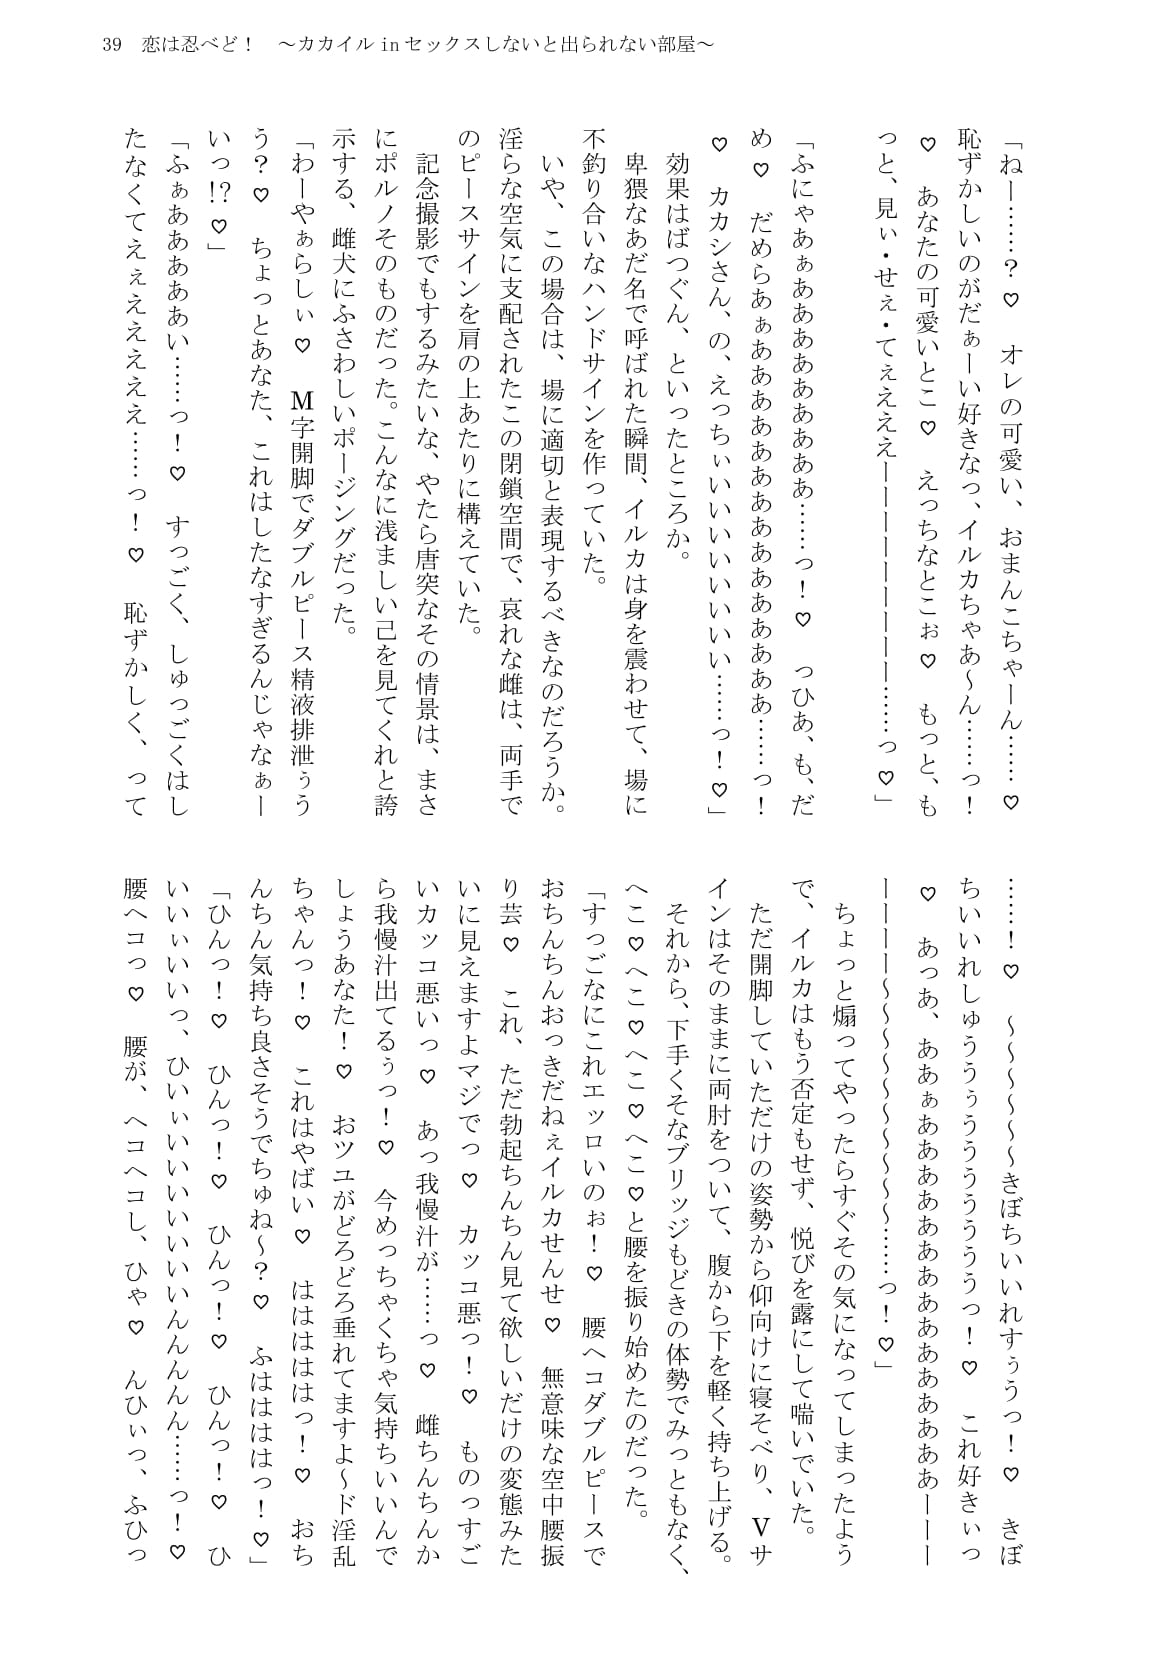 39　恋は忍べど！　～カカイル in セックスしないと出られない部屋～
「ねー……？♡　オレの可愛い、おまんこちゃーん……♡
恥ずかしいのがだぁーい好きなっ、イルカちゃあ～ん……っ！
♡　あなたの可愛いとこ♡　えっちなとこぉ♡　もっと、も
っと、見ぃ・せぇ・てぇえええーーーーーーーー……っ♡」
「ふにゃあぁああああああああああ……っ！♡　っひあ、も、だ
め♡　だめらあぁああああああああああああああああ……っ！
♡　カカシさん、の、えっちぃいいいいいいいい……っ！♡」
　効果はばつぐん、といったところか。
　卑猥なあだ名で呼ばれた瞬間、イルカは身を震わせて、場に
不釣り合いなハンドサインを作っていた。
　いや、この場合は、場に適切と表現するべきなのだろうか。
淫らな空気に支配されたこの閉鎖空間で、哀れな雌は、両手で
のピースサインを肩の上あたりに構えていた。
　記念撮影でもするみたいな、やたら唐突なその情景は、まさ
にポルノそのものだった。こんなに浅ましい己を見てくれと誇
示する、雌犬にふさわしいポージングだった。
「わーやぁらしぃ♡　M字開脚でダブルピース精液排泄ぅう
う？♡　ちょっとあなた、これはしたなすぎるんじゃなぁー
いっ!?♡」
「ふぁああああい……っ！♡　すっごく、しゅっごくはし
たなくてえぇええええええ……っ！♡　恥ずかしく、って
……！♡　～～～～～きぼちいいれすぅうっ！♡　きぼ
ちいいれしゅううぅうううううううっ！♡　これ好きぃっ
♡　あっあ、ああぁああああああああああああああああーーー
ーーーー～～～～～～～～～……っ！♡」
　ちょっと煽ってやったらすぐその気になってしまったよう
で、イルカはもう否定もせず、悦びを露にして喘いでいた。
　ただ開脚していただけの姿勢から仰向けに寝そべり、Vサ
インはそのままに両肘をついて、腹から下を軽く持ち上げる。
　それから、下手くそなブリッジもどきの体勢でみっともなく、
へこ♡へこ♡へこ♡へこ♡と腰を振り始めたのだった。
「すっごなにこれエッロいのぉ！♡　腰ヘコダブルピースで
おちんちんおっきだねぇイルカせんせ♡　無意味な空中腰振
り芸♡　これ、ただ勃起ちんちん見て欲しいだけの変態みた
いに見えますよマジでっ♡　カッコ悪っ！♡　ものっすご
いカッコ悪いっ♡　あっ我慢汁が……っ♡　雌ちんちんか
ら我慢汁出てるぅっ！♡　今めっちゃくちゃ気持ちいいんで
しょうあなた！♡　おツユがどろどろ垂れてますよ～ド淫乱
ちゃんっ！♡　これはやばい♡　はははははっ！♡　おち
んちん気持ち良さそうでちゅね～？♡　ふはははははっ！♡」
「ひんっ！♡　ひんっ！♡　ひんっ！♡　ひんっ！♡　ひ
いいぃいいっ、ひいぃいいいいいいいんんんんん……っ！♡
腰ヘコっ♡　腰が、ヘコヘコし、ひゃ♡　んひぃっ、ふひっ